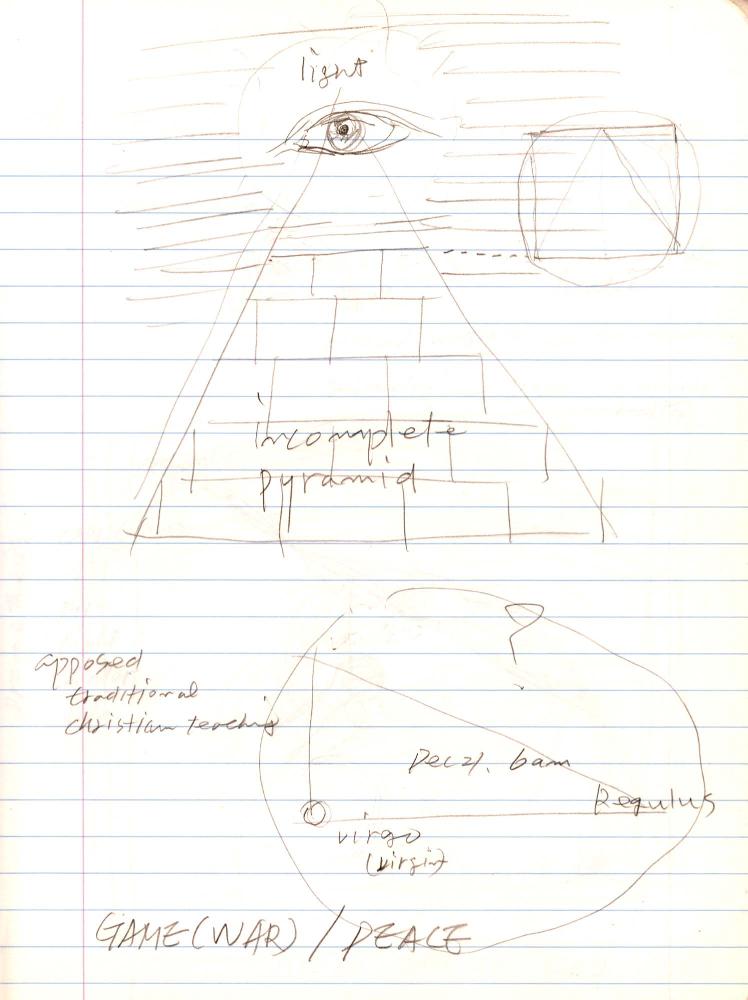 light
incomplete
pyramid
apposed
traditional
christian teaching
Dec 21. 6am
Regulus
virgo
(virgin)
GAME(WAR) / PEACE